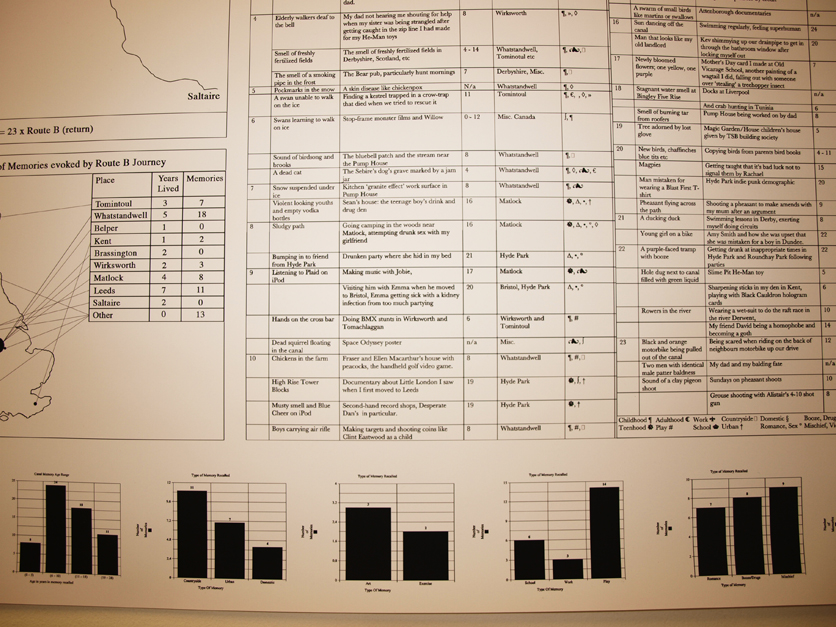 Saltaire
= 23 x Route B (return)
of Memories evoked by Route B Journey
Place Years Lived Memories
Tomintoul 3 7
Whatstandwell 5 18
Belper 1 0
Kent 1 2
Brassington 2 0
Wirksworth 2 3
Matlock 4 8
Leeds 7 11
Saltaire 2 0
Other 0 13
dad.
4 Elderly walkers deaf to the bell My dad not hearing me shouting for help when my sister was being strangled after getting caught in the zip line I had made for my He-Man toys 8 Wirksworth
Smell of freshly fertilized fields The smell of freshly fertilized fields in Derbyshire, Scotland, etc 4 - 14 Whatstandwell, Tomintoul etc
The smell of a smoking pipe in the frost The Bear pub, particularly hunt mornings 7 Derbyshire, Misc.
5 Pockmarks in the snow A skin disease like chickenpox N/a Whatstandwell
A swan unable to walk on the ice Finding a kestrel trapped in a crow-trap that died when we tried to rescue it 11 Tomintoul
6 Swans learning to walk on ice Stop-frame monster films and Willow 0 - 12 Misc. Canada
Sound of birdsong and brooks The bluebell patch and the stream near the Pump House 8 Whatstandwell
A dead cat The Sebire's dog's grave marked by a jam jar 4 Whatstandwell
7 Snow suspended under ice Kitchen 'granite effect' work surface in Pump House 8 Whatstandwell
Violent looking youths and empty vodka bottles Sean's house: the teenage boy's drink and drug den 16 Matlock
8 Sludgy path Going camping in the woods near Matlock, attempting drunk sex with my girlfriend 16 Matlock
Bumping in to friend from Hyde Park Drunken party where she hid in my bed 21 Hyde Park
9 Listening to Plaid on iPod Making music with Jobie, 17 Matlock
Visiting him with Emma when he moved to Bristol, Emma getting sick with a kidney infection from too much partying 20 Bristol, Hyde Park
Hands on the cross bar Doing BMX stunts in Wirksworth and Tomachlaggan 6 Wirksworth and Tomintoul
Dead squirrel floating in the canal Space Odyssey poster n/a Misc.
10 Chickens in the farm Fraser and Ellen Macarthur's house with peacocks, the handheld golf video game. 8 Whatstandwell
High Rise Tower Blocks Documentary about Little London I saw when I first moved to Leeds 19 Hyde Park
Musty smell and Blue Cheer on iPod Second-hand record shops, Desperate Dan's in particular. 19 Hyde Park
Boys carrying air rifle Making targets and shooting coins like Clint Eastwood as a child 8 Whatstandwell
A swarm of small birds like martins or swallows Attenborough documentaries n/a
16 Sun dancing off the canal Swimming regularly, feeling superhuman 24
Man that looks like my old landlord Kev shimmying up our drainpipe to get in through the bathroom window after locking myself out 20
17 Newly bloomed flowers, one yellow, one purple Mother's Day card I made at Old Vicarage School, another painting of a wagtail I did, falling out with someone over 'stealing' a treehopper insect 7
18 Stagnant water smell at Bingley Five Rise Docks at Liverpool n/a
And crab hunting in Tunisia 6
Smell of burning tar from roofers Pump House being worked on by dad 8
19 Tree adorned by lost glove Magic Garden/House children's house given by TSB building society 5
20 New birds, chaffinches blue tits etc Copying birds from parents bird books 4 - 11
Magpies Getting taught that it's bad luck not to signal them by Rachael 15
Man mistaken for wearing a Blust First T-shirt Hyde Park indie punk demographic 20
Pheasant flying across the path Shooting a pheasant to make amends with my mum after an argument 9
21 A ducking duck Swimming lessons in Derby, exerting myself doing circuits 8
Young girl on a bike Amy Smith and how she was upset that she was mistaken for a boy in Dundee. 22
22 A purple-faced tramp with booze Getting drunk at inappropriate times in Hyde Park and Roundhay Park following parties 22
Hole dug next to canal filled with green liquid Slime Pit He-Man toy 5
Sharpening sticks in my den in Kent, playing with Black Cauldron hologram cards 6
Rowers in the river Wearing a wet-suit to do the raft race in the river Derwent, 10
My friend David being a homophobe and becoming a goth 14
23 Black and orange motorbike being pulled out of the canal Being scared when riding on the back of neighbours motorbike up our drive 12
Two men with identical male patter baldness My dad and my balding fate n/a
Sound of a clay pigeon shoot Sundays on pheasant shoots 10
Grouse shooting with Alistair's 4-10 shot gun 8
Childhood ¶ Adulthood € Work Countryside Domestic § Booze, Drug
Teenhood Play # School Urban † Romance, Sex * Mischief, Vi
Type of Memory Recalled
Type of Memory Recalled
Type of Memory Recalled
Type of Memory Recalled
Countryside Urban Domestic
Art Exercise
School Work Play
Romance Booze/Drugs Mischief
Type Of Memory
Type Of Memory
Type Of Memory
Type of Memory